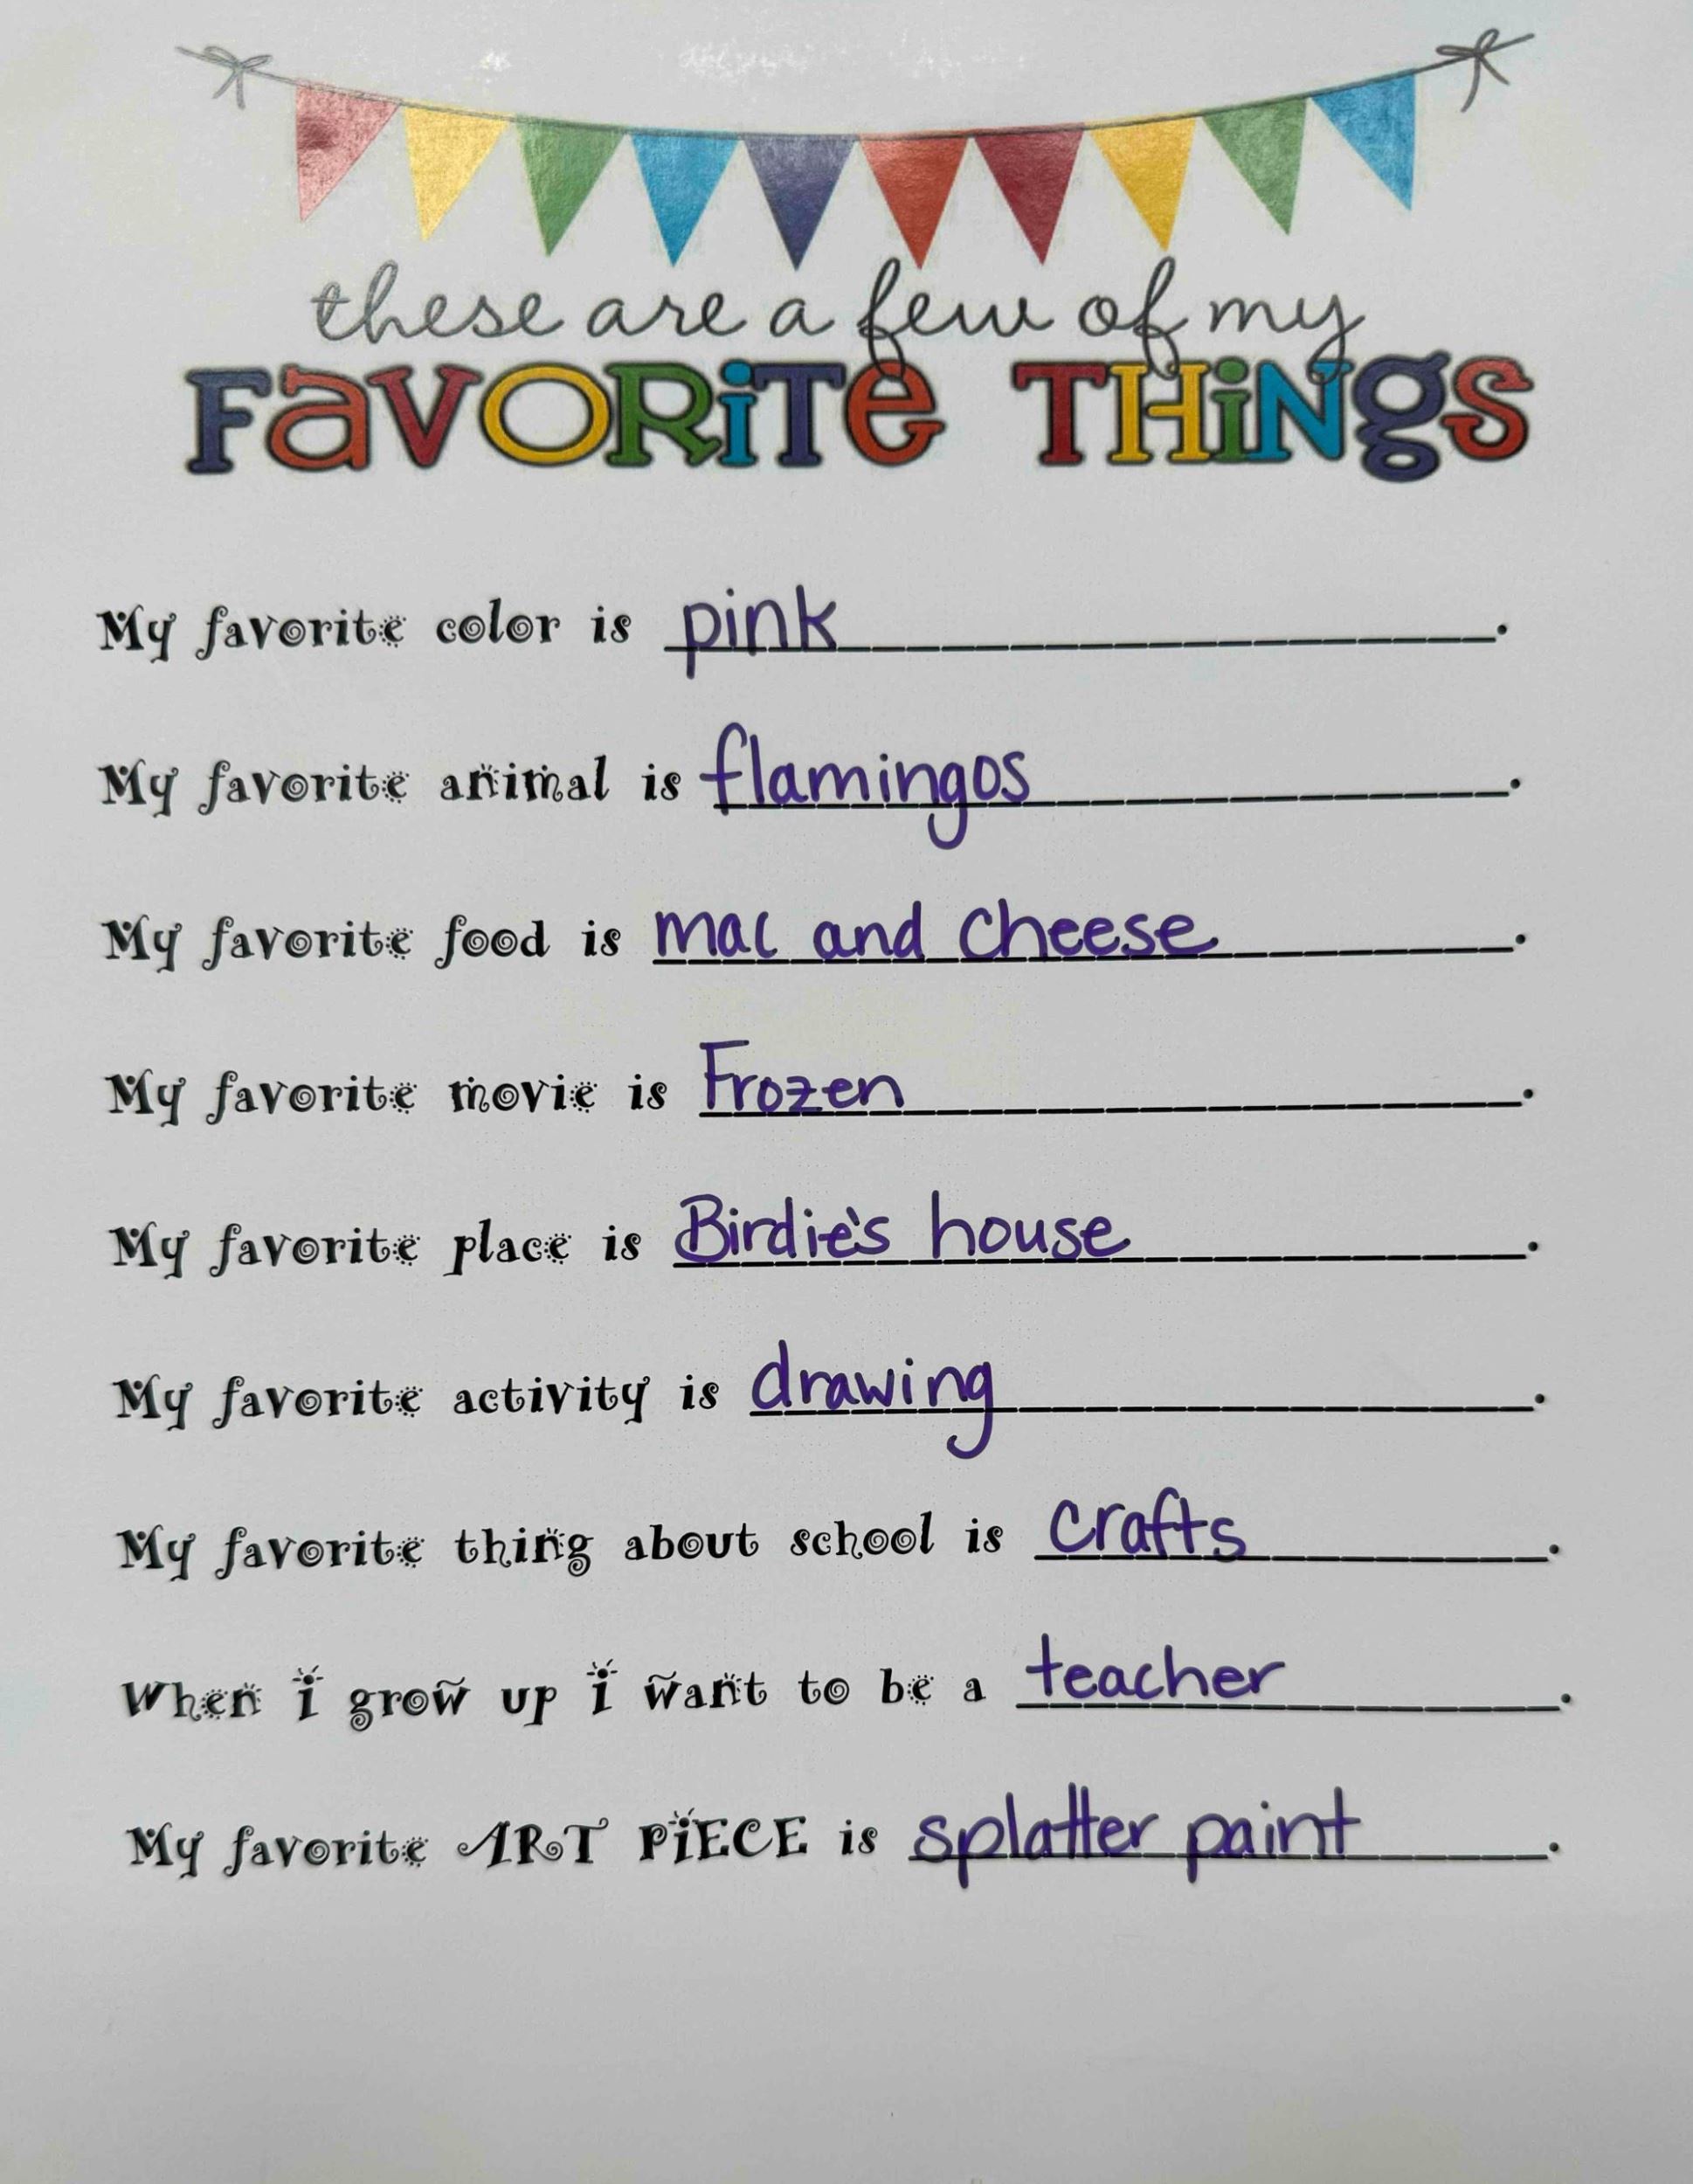 these are a few of my
FAVORiTe THiNgS
My favorite color is pink.
My favorite animal is flamingos.
My favorite food is mac and cheese.
My favorite movie is Frozen.
My favorite place is Birdie's house.
My favorite activity is drawing.
My favorite thing about school is crafts.
When i grow up i want to be a teacher.
My favorite ART PiECE is splatter paint.